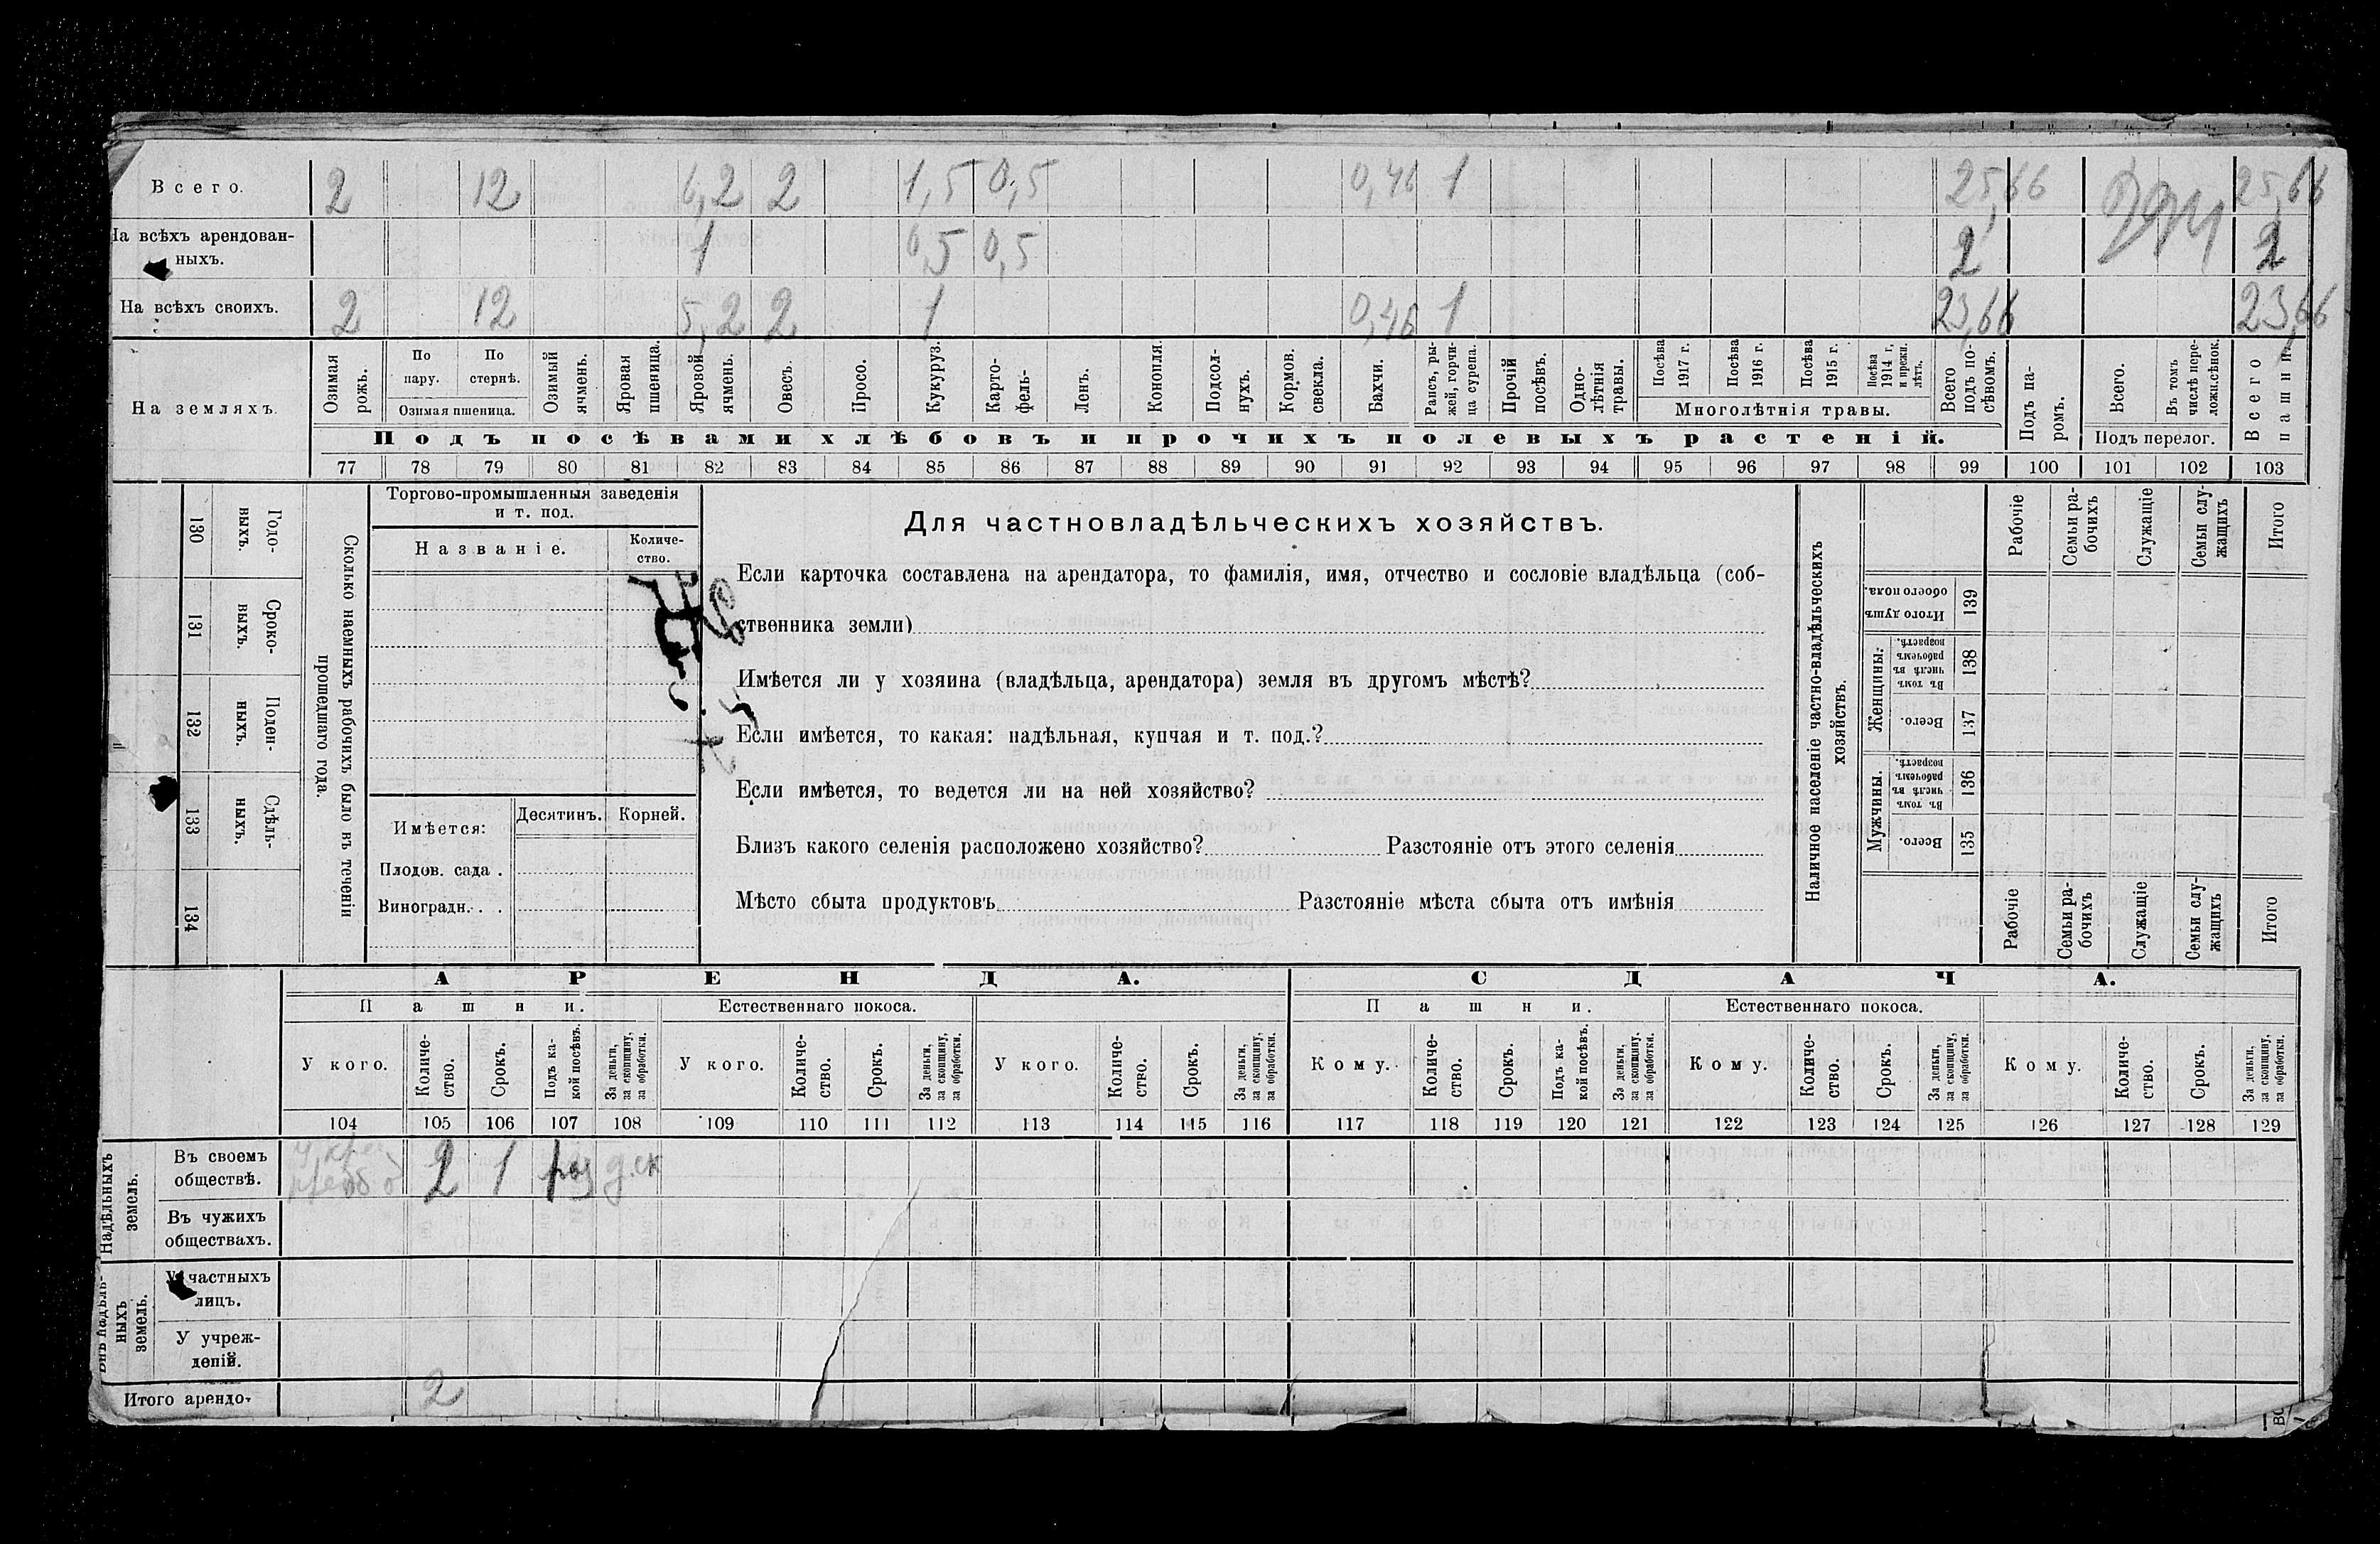 Всего. 2 12 6,2 2 1,5 0,5 0,46 1 25,66 25,66
На всѣхъ арендован-
ныхъ. 1 0,5 0,5 2 2
На всѣхъ своихъ. 2 12 5,2 2 1 0,46 1 23,66 23,66
На земляхъ.
Озимая рожь.
По пару.
По стернѣ.
Озимая пшеница.
Озимый ячмень.
Яровая пшеница.
Яровой ячмень.
Овесъ.
Просо.
Кукуруз.
Карто-
фель-
Ленъ.
Конопля.
Подсол-
нухъ.
Кормов. свекла.
Бахчи.
Рапсъ, ры-
жей, горчи-
ца сурепа.
Прочій посѣвъ.
Одно-
лѣтнія травы.
Посѣва 1917 г.
Посѣва 1916 г.
Посѣва 1915 г.
Посѣва 1914 г. и прежн. лѣтъ.
Многолѣтнія травы.
Всего подъ по-
сѣвомъ.
Подъ па-
ромъ.
Всего.
Въ томъ числѣ пере-
лож.сѣнок.
Подъ перелог.
Всего пашни.
Подъ посѣвами хлѣбовъ и прочихъ полевыхъ растеній.
77 78 79 80 81 82 83 84 85 86 87 88 89 90 91 92 93 94 95 96 97 98 99 100 101 102 103
Сколько наемныхъ рабочихъ было въ теченіи
прошедшаго года.
Годо-
выхъ.
130
Сроко-
выхъ.
131
Поден-
ныхъ.
132
Сдѣль-
ныхъ.
133
134
Торгово-промышленныя заведенія
и т. под.
Названіе.
Количе-
ство.
Имѣется:
Десятинъ.
Корней.
Плодов. сада .
Виноградн. . .
Для частновладѣльческихъ хозяйствъ.
Если карточка составлена на арендатора, то фамилія, имя, отчество и сословіе владѣльца (соб-
ственника земли)
Имѣется ли у хозяина (владѣльца, арендатора) земля въ другомъ мѣстѣ?
Если имѣется, то какая: надѣльная, купчая и т. под.?
Если имѣется, то ведется ли на ней хозяйство?
Близъ какого селенія расположено хозяйство? Разстояніе отъ этого селенія
Мѣсто сбыта продуктовъ Разстояніе мѣста сбыта отъ имѣнія
Наличное населеніе частно-владѣльческихъ
хозяйствъ.
Мужчины.
Женщины.
Всего.
135
Въ томъ числѣ въ рабочемъ возрастѣ.
136
Всего.
137
Въ томъ числѣ въ рабочемъ возрастѣ.
138
Итого душъ обоего пола.
139
Рабочіе
Семьи ра-
бочихъ
Служащіе
Семьи слу-
жащихъ
Итого
Рабочіе
Семьи ра-
бочихъ
Служащіе
Семьи слу-
жащихъ
Итого
АРЕНДА. СДАЧА.
Пашни. Естественнаго покоса. Пашни. Естественнаго покоса.
У кого.
Количе-
ство.
Срокъ.
Подъ ка-
кой посѣвъ.
За деньги,
за скопщину,
за обработки.
У кого.
Количе-
ство.
Срокъ.
За деньги,
за скопщину,
за обработки.
У кого.
Количе-
ство.
Срокъ.
За деньги,
за скопщину,
за обработки.
Кому.
Количе-
ство.
Срокъ.
Подъ ка-
кой посѣвъ.
За деньги,
за скопщину,
за обработки.
Кому.
Количе-
ство.
Срокъ.
За деньги,
за скопщину,
за обработки.
Кому.
Количе-
ство.
Срокъ.
За деньги,
за скопщину,
за обработки.
104 105 106 107 108 109 110 111 112 113 114 115 116 117 118 119 120 121 122 123 124 125 126 127 128 129
Надѣльныхъ
земель.
Въ своемъ
обществѣ. 2 1
Въ чужихъ
обществахъ.
Внѣ надѣль-
ныхъ
земель.
У частныхъ
лицъ.
У учреж-
деній.
Итого арендо- 2